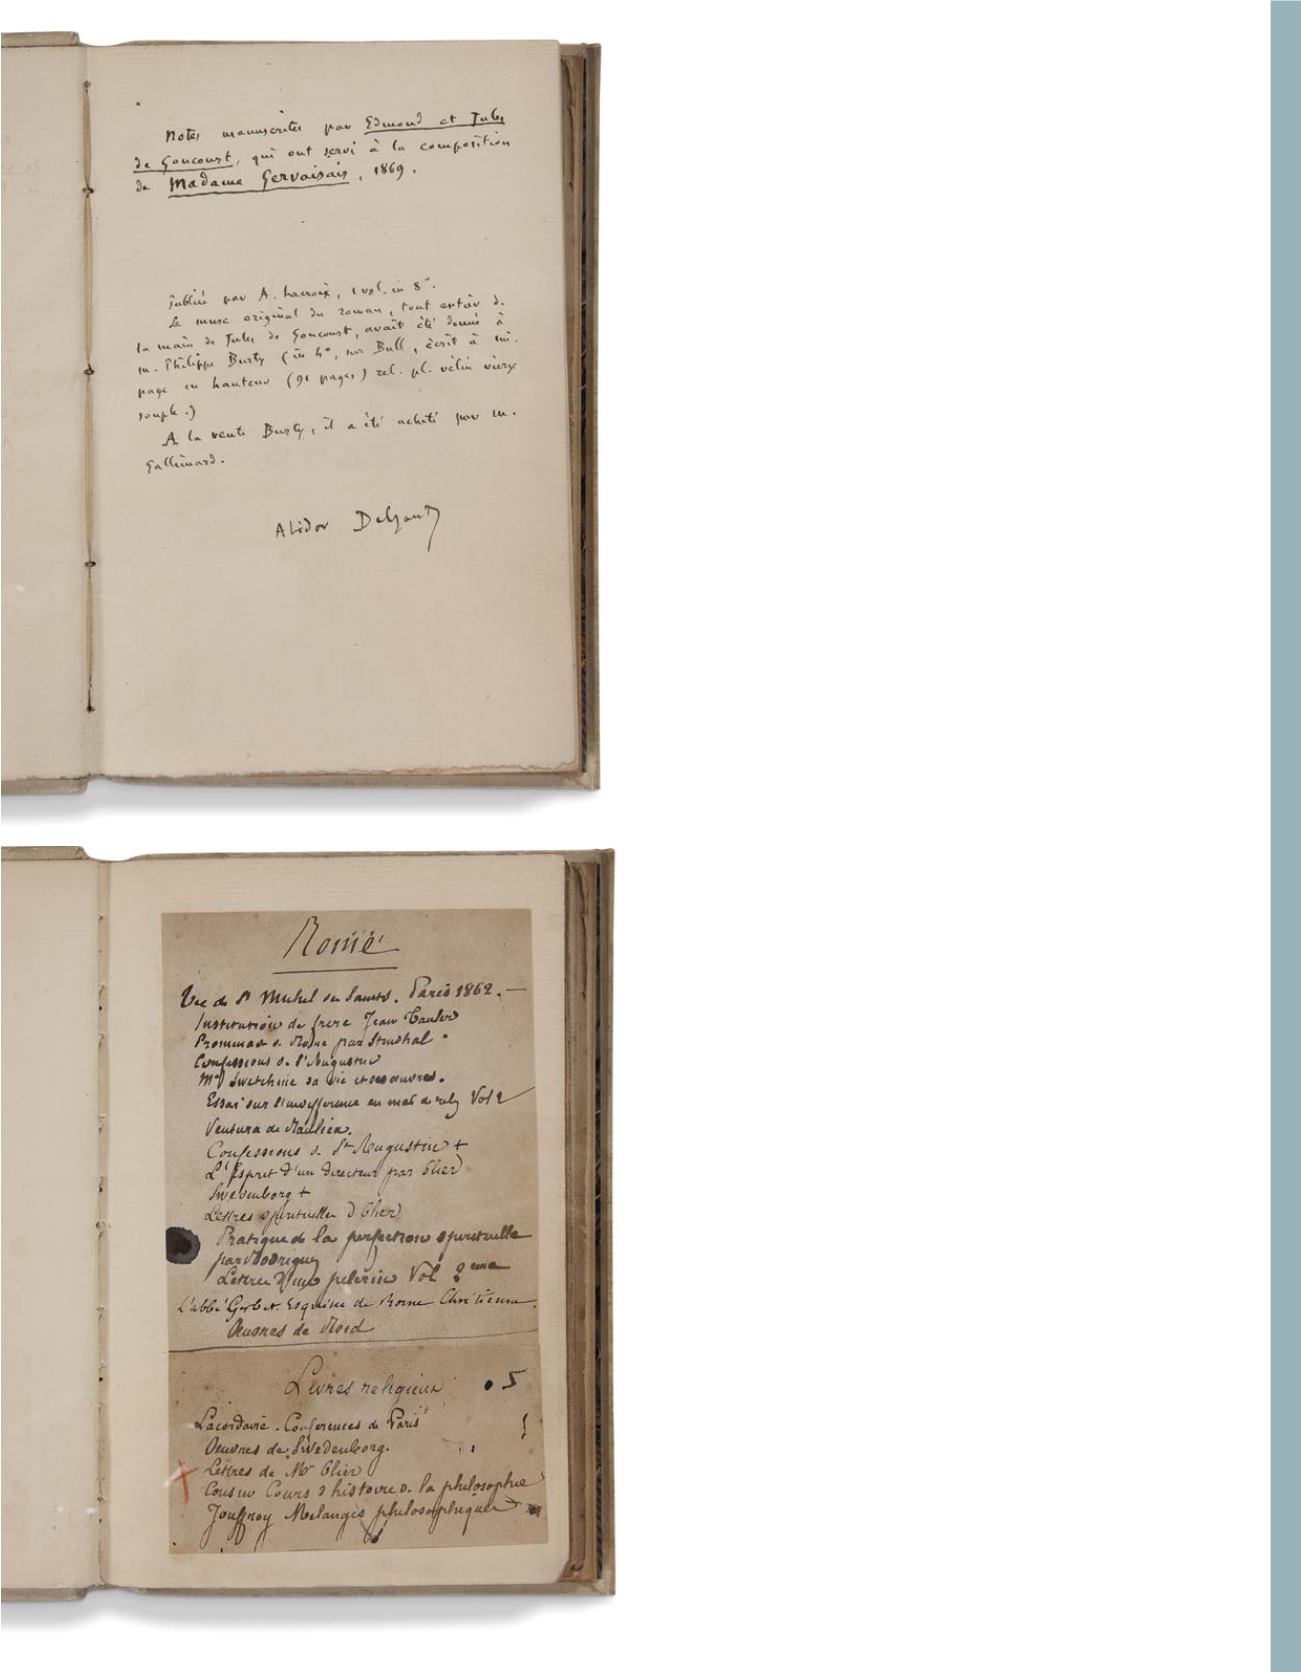 Notes manuscrites par Edmond et Jules
de Goncourt, qui ont servi à la composition
de Madame Gervaisais, 1869.
Publié par A. Lacroix, 1 vol. in 8°.
Le manusc original du roman, tout entier d.
la main de Jules de Goncourt, avait été donné à
m. Philippe Burty (in 4°, sur Bull, écrit à mi.
page en hauteur (91 pages) rel. pl. vélin vierge
souple.)
A la vente Burty, il a été acheté par m.
Gallimard.
Alidor Delzant
Rome
Vie de St Michel des Saints. Paris 1862. —
Institution de frere Jean Tauler
Promenades d. Rome par Stendhal
Confessions d. St Augustin
Me Swetchine sa vie et ses œuvres.
Essai sur l'indifference en mat de relig Vol 2
Ventura de Raulica.
Confessions d. St Augustin +
L'Esprit d'un directeur par Olier
Swedenborg +
Lettres spirituelles d Olier
Pratique de la perfection spirituelle
par Rodriguez
Lettres d'un pelerin Vol 2eme
L'abbé Gerbet. Esquisse de Rome Chrétienne.
Œuvres de
Livres religieux • 5
Lacordaire. Conferences de Paris
Oeuvres de Swedenborg.
Lettres de Mr Olier
Cousin Cours d histoire d. la philosophie
Jouffroy Melanges philosophiques